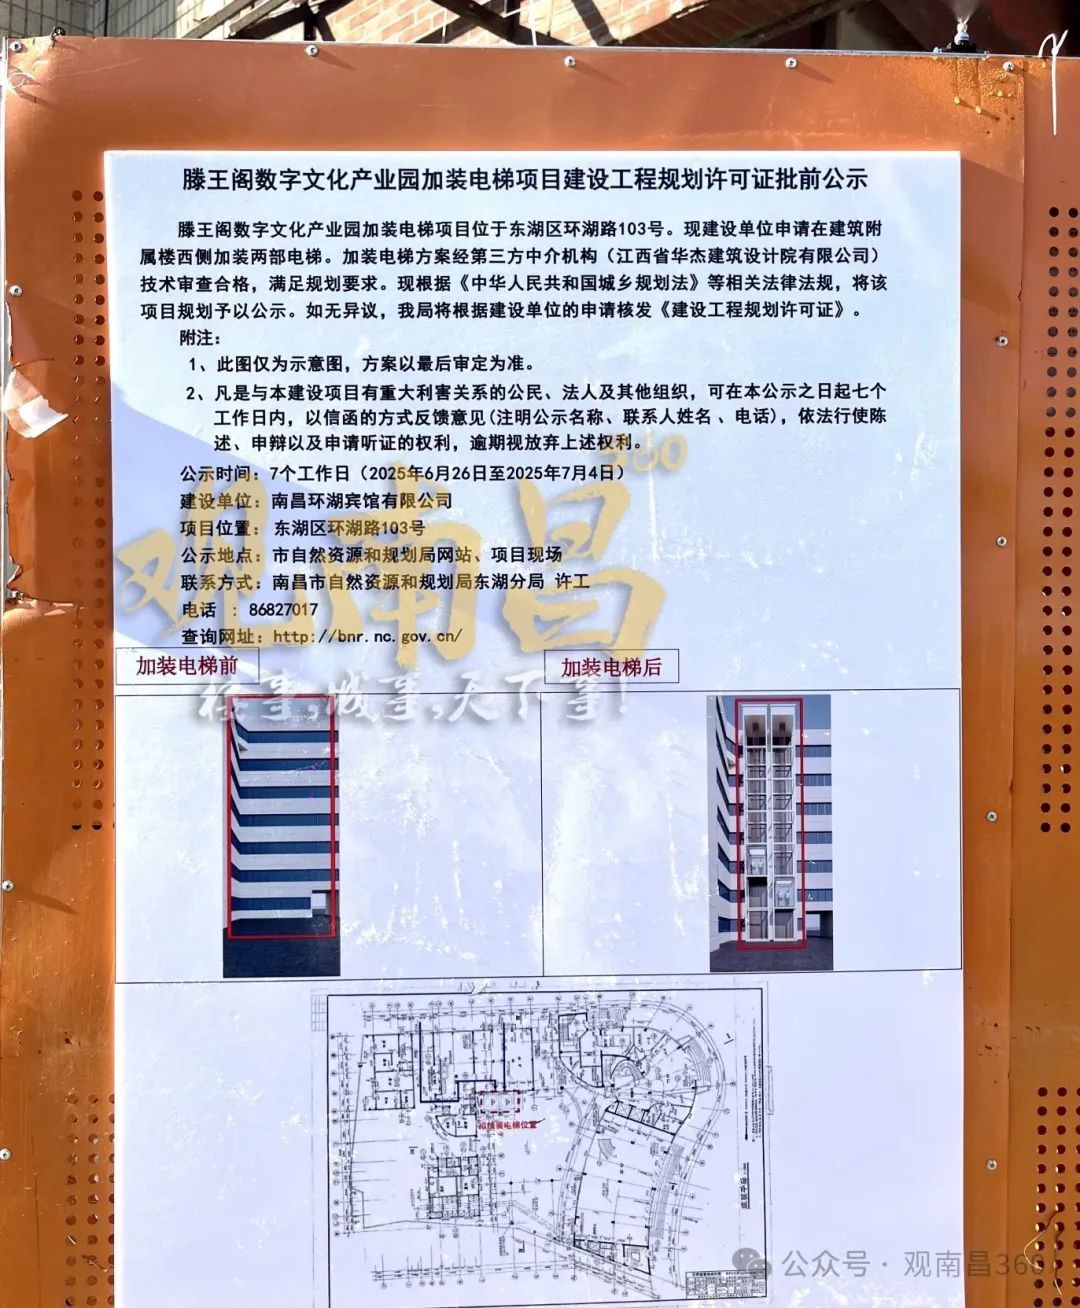 滕王阁数字文化产业园加装电梯项目建设工程规划许可证批前公示
滕王阁数字文化产业园加装电梯项目位于东湖区环湖路103号。现建设单位申请在建筑附
属楼西侧加装两部电梯。加装电梯方案经第三方中介机构（江西省华杰建筑设计院有限公司）
技术审查合格，满足规划要求。现根据《中华人民共和国城乡规划法》等相关法律法规，将该
项目规划予以公示。如无异议，我局将根据建设单位的申请核发《建设工程规划许可证》。
附注：
1、此图仅为示意图，方案以最后审定为准。
2、凡是与本建设项目有重大利害关系的公民、法人及其他组织，可在本公示之日起七个
工作日内，以信函的方式反馈意见(注明公示名称、联系人姓名、电话)，依法行使陈
述、申辩以及申请听证的权利，逾期视放弃上述权利。
公示时间：7个工作日（2025年6月26日至2025年7月4日）
建设单位：南昌环湖宾馆有限公司
项目位置：东湖区环湖路103号
公示地点：市自然资源和规划局网站、项目现场
联系方式：南昌市自然资源和规划局东湖分局 许工
电话 : 86827017
查询网址：http://bnr.nc.gov.cn/
观南昌360
加装电梯前
加装电梯后
天下事!
加装电梯位置
公众号 · 观南昌360